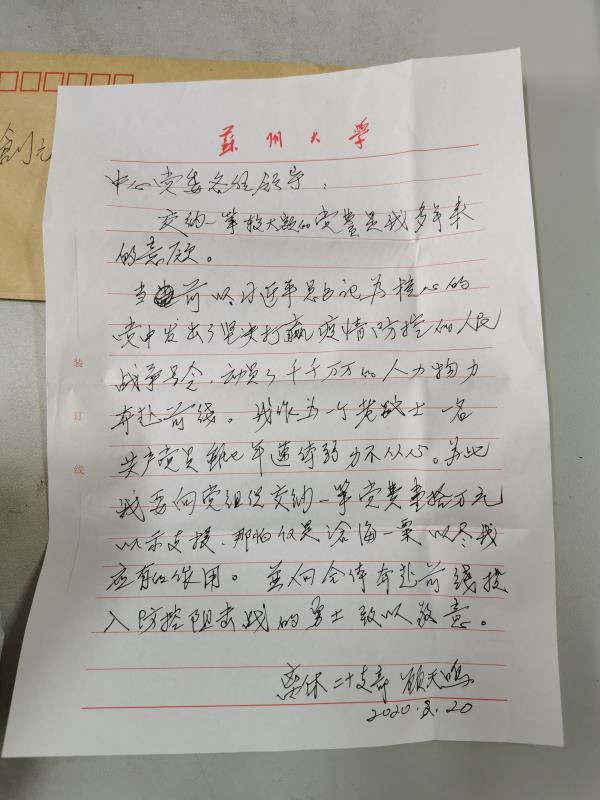 蘇州大學
中心党委各位领导：
交纳一笔较大额的党费是我多年来
的意愿。
当前以习近平总书记为核心的
党中发出了坚决打赢疫情防控的人民
战争号令，动员了千千万万的人力物力
奔赴前线。我作为一个老战士一名
共产党员 年迈体弱力不从心。为此
我要向党组织交纳一笔党费 拾万元
以示支援，那怕仅是沧海一粟以尽我
应有的作用。并向全体奔赴前线投
入防控阻击战的勇士致以敬意。
离休二十支部 顾天鸣
2020.2.20
装
订
线
创元